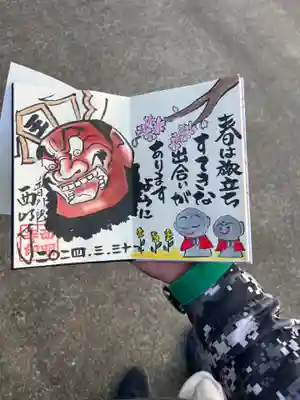 春は旅立ち
すてきな
出合いが
あります
ように
王
二〇二四.三.三十